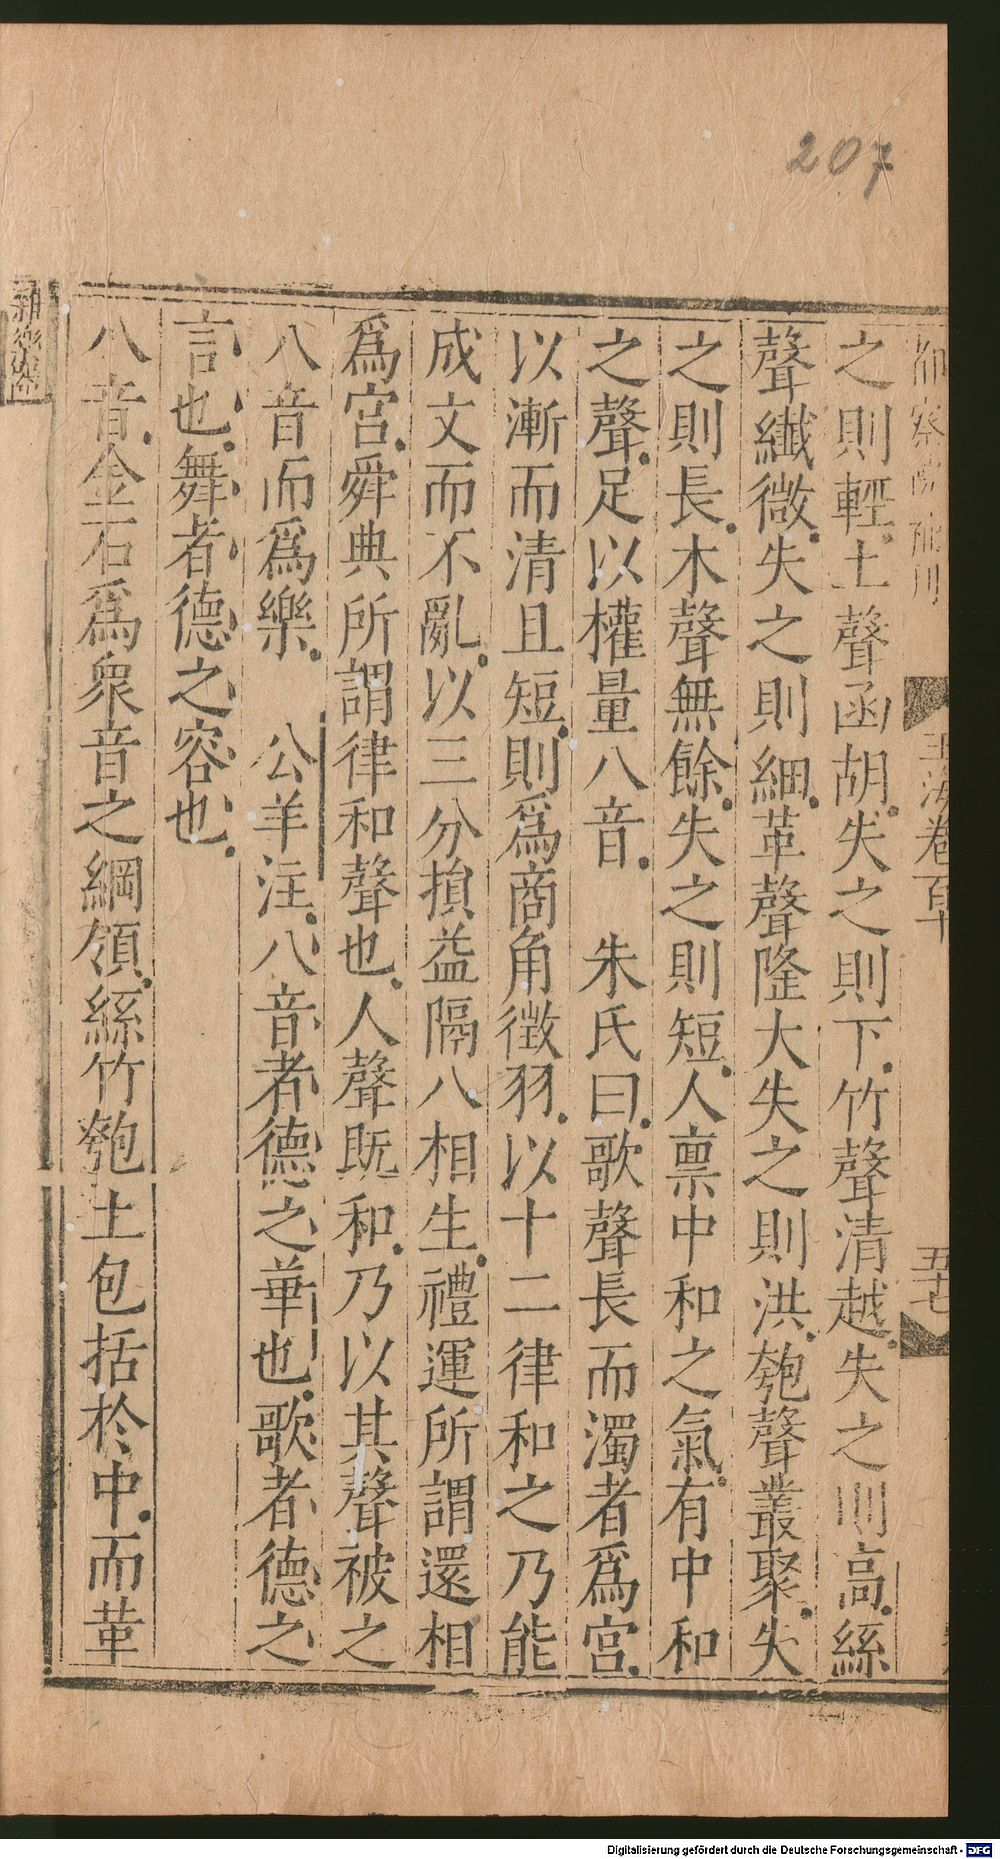 207
之則輕土聲函胡失之則下竹聲清越失之則高絲
聲纖微失之則細革聲隆大失之則洪匏聲叢聚失
之則長木聲無餘失之則短人禀中和之氣有中和
之聲足以權量八音　朱氏曰歌聲長而濁者爲宮
以漸而清且短則爲商角徵羽以十二律和之乃能
成文而不亂以三分損益隔八相生禮運所謂還相
爲宮舜典所謂律和聲也人聲既和乃以其聲被之
八音而爲樂　公羊注八音者德之華也歌者德之
言也舞者德之容也
八音金石爲衆音之綱領絲竹匏土包括於中而革
玉海卷百十
五十七
Digitalisierung gefördert durch die Deutsche Forschungsgemeinschaft - DFG